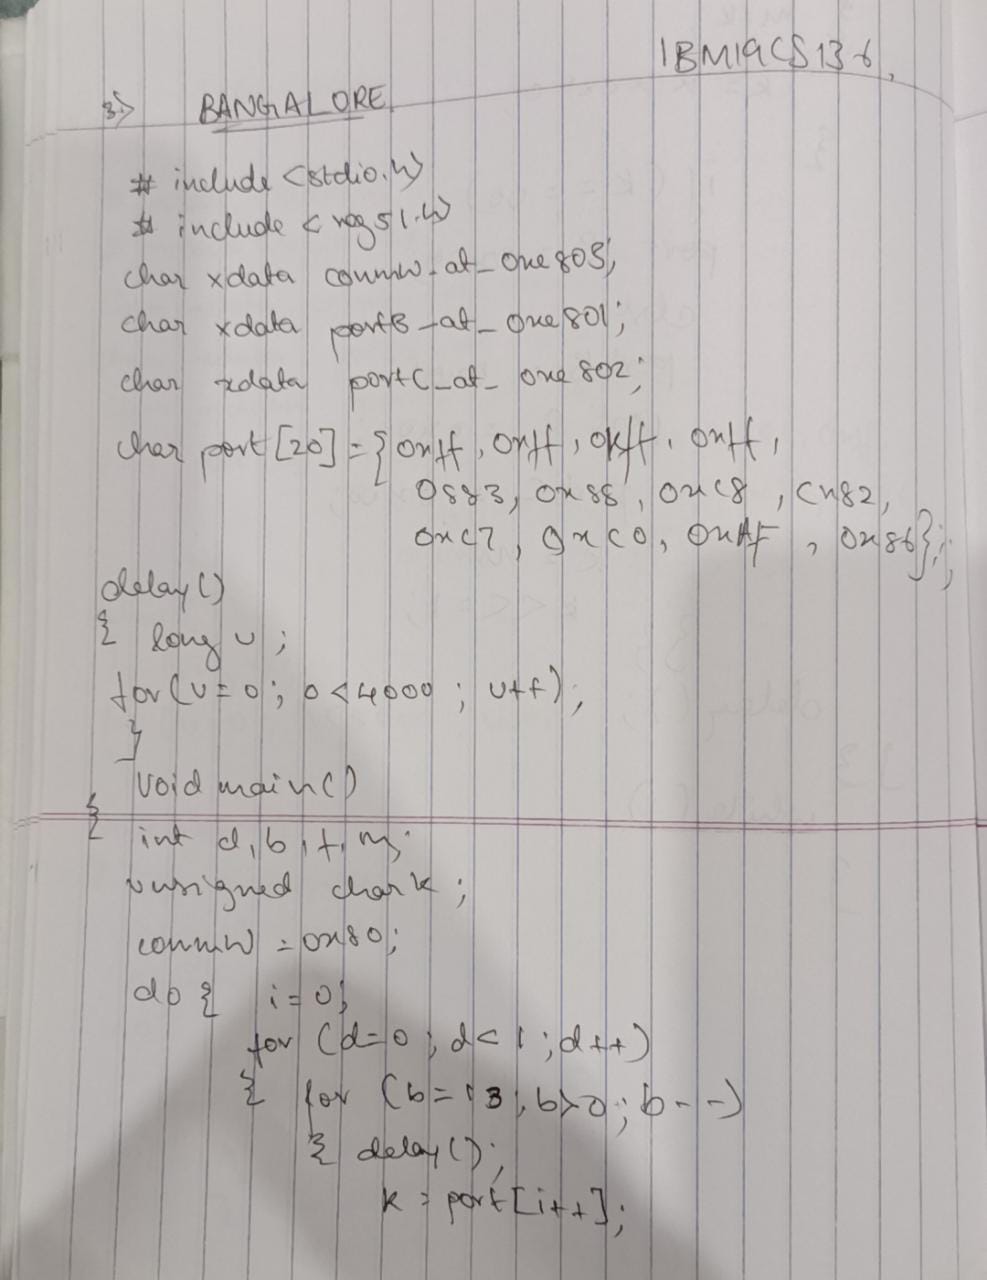 1BM19CS136,
3> BANGALORE
# include <stdio.h>
# include < reg51.h>
char xdata commw_at_0xe803;
char xdata portB_at_0xe801;
char xdata portC_at_0xe802;
char port[20]={0xff, 0xff, 0xff, 0xff,
0883, 0x88, 0xc8, Cx82,
0xc7, 0xc0, 0xAF, 0x86};;
delay()
{ long u;
for(u=0; 0<4000; u++);
}
void main()
{ int d,b,t,m;
unsigned char k;
commw = 0x80;
do { i=0;
for (d=0; d<1; d++)
{ for (b=13, b>0; b--)
{ delay();
k = port[i++];